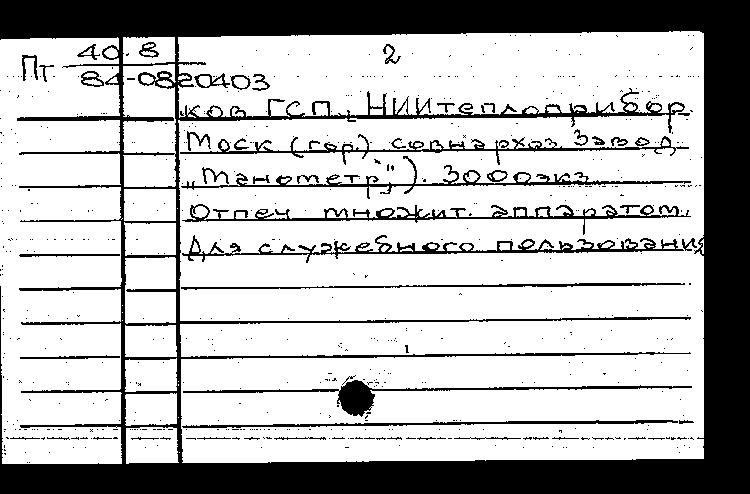 2
Пт 40.8
84-0820403
ков ГСП, НИИтеплоприбор.
Моск (гор.) совнархоз. Завод
„Манометр“,). 3000экз
Отпеч множит. аппаратом.
Для служебного пользования